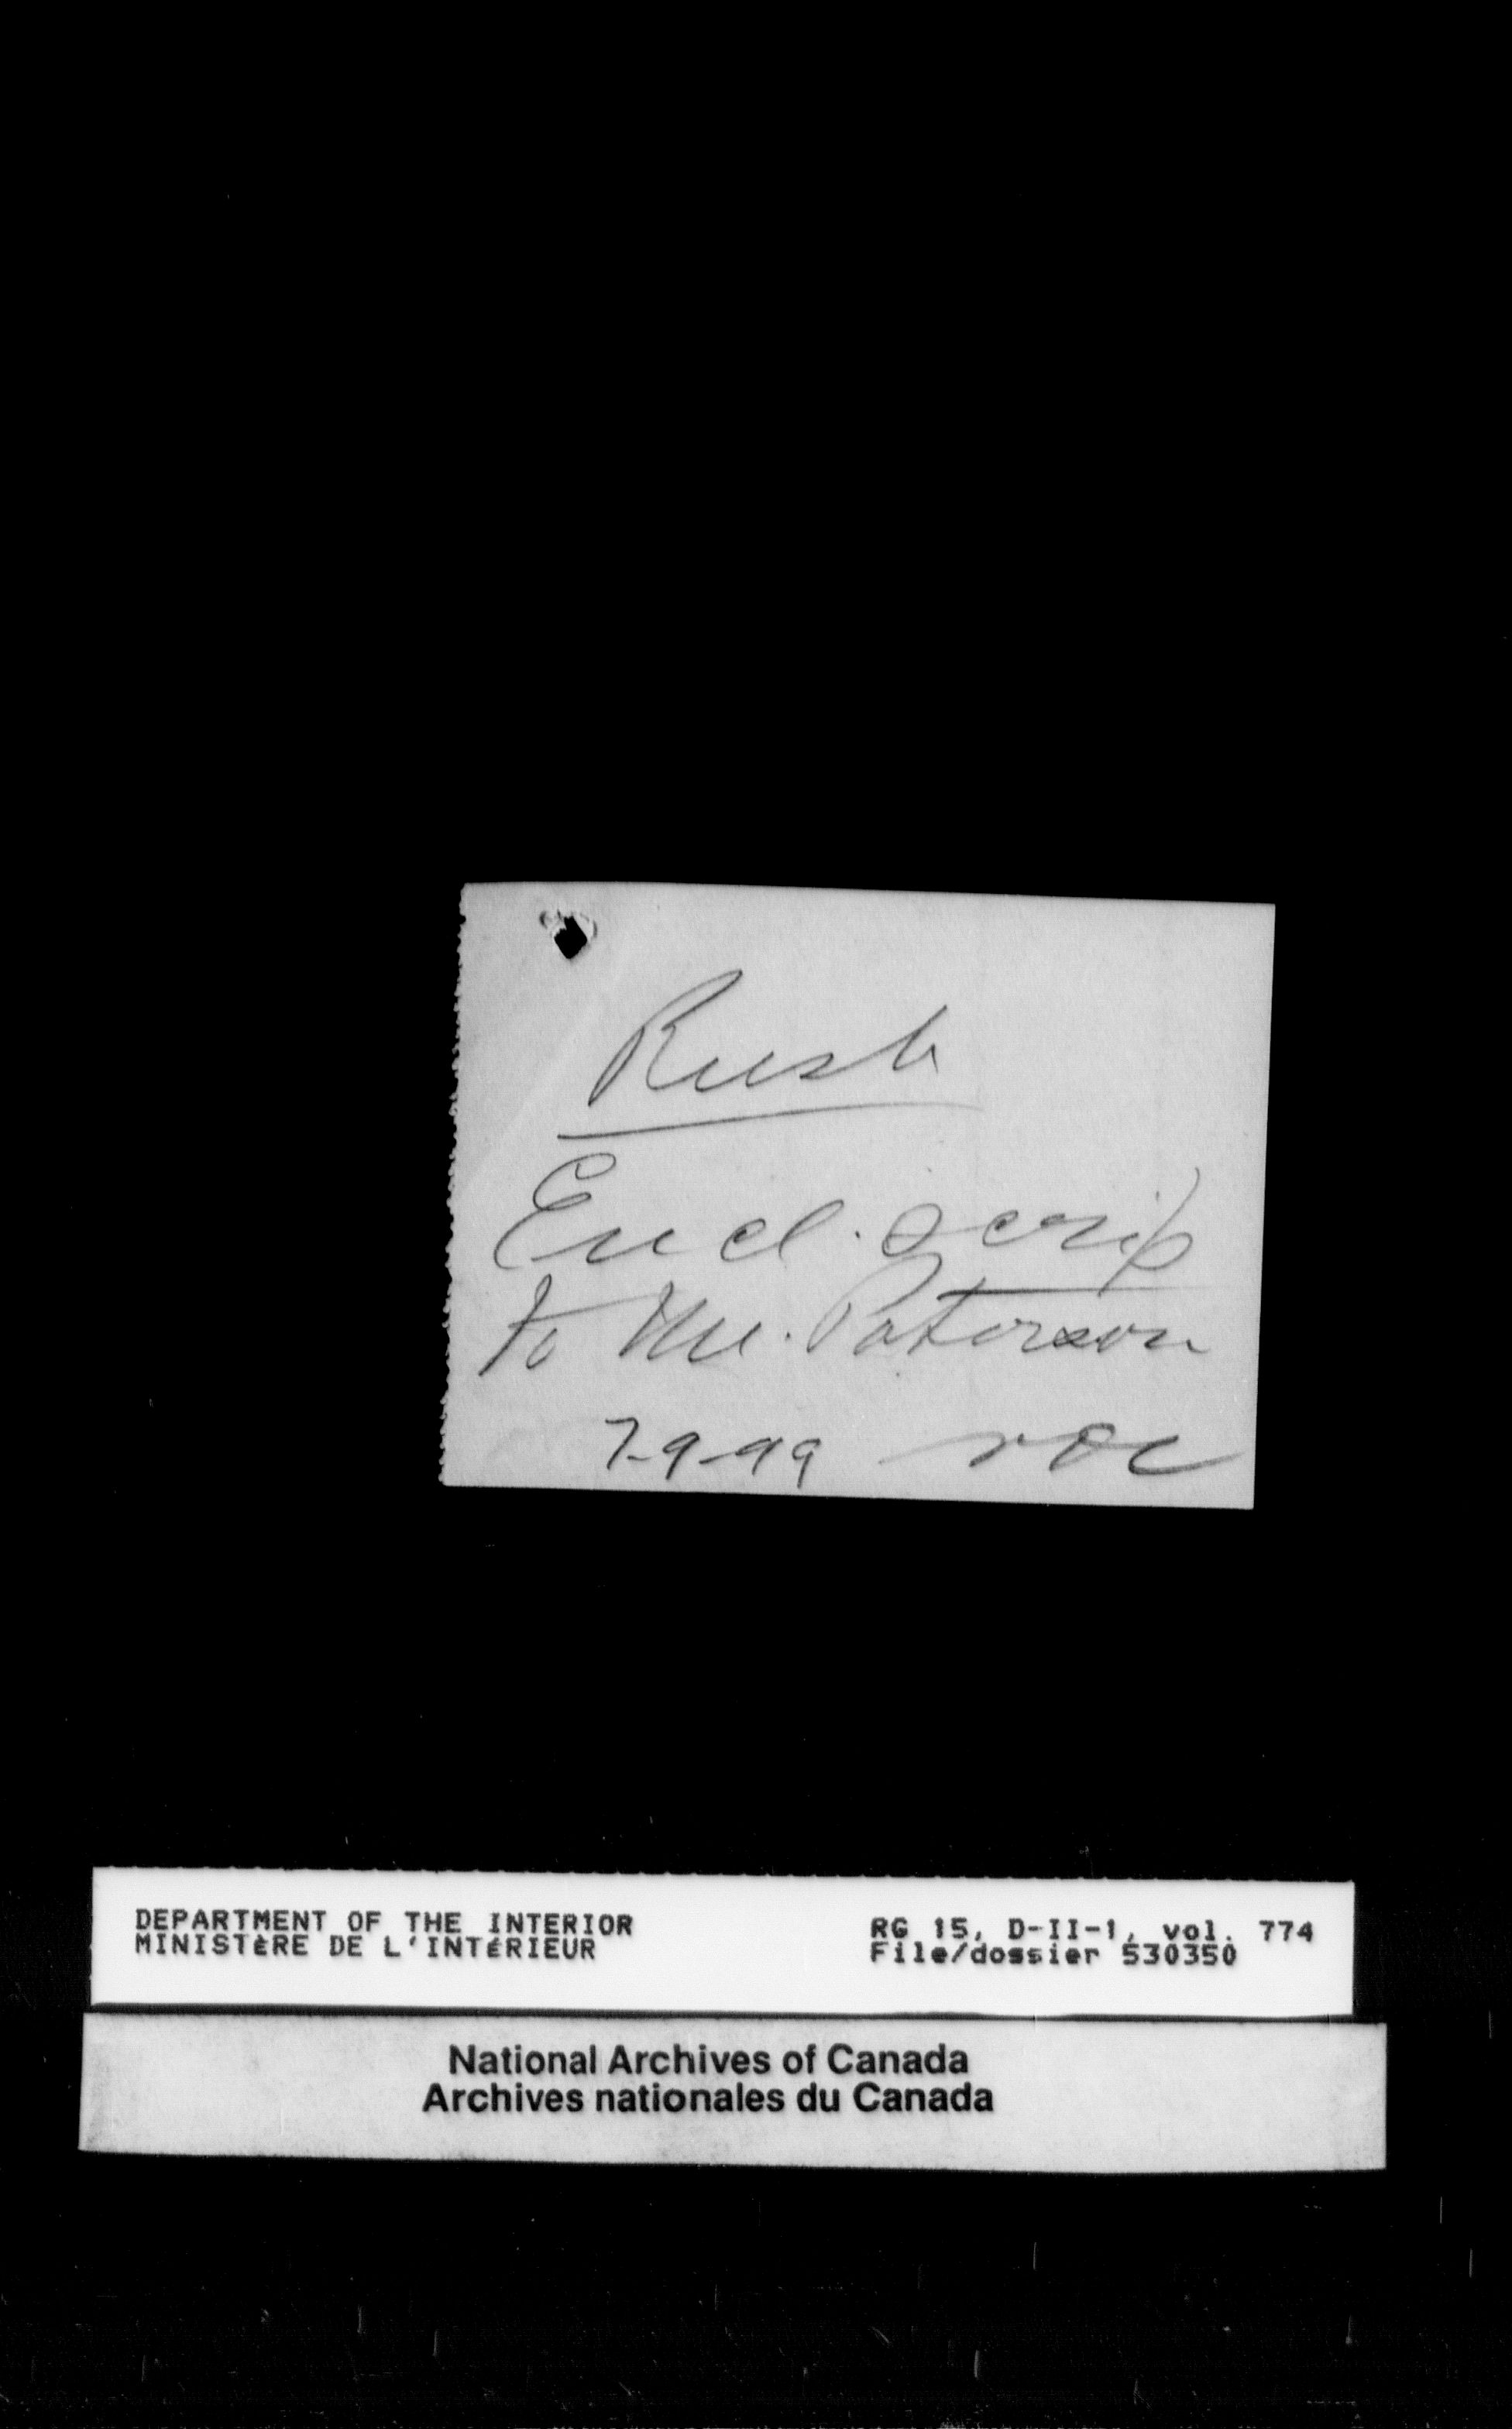 Rush
Encl. Scrip
to Mr. Paterson
7-9-99
DEPARTMENT OF THE INTERIOR
MINISTÈRE DE L'INTÉRIEUR
RG 15, D-II-1, vol. 774
File/dossier 530350
National Archives of Canada
Archives nationales du Canada